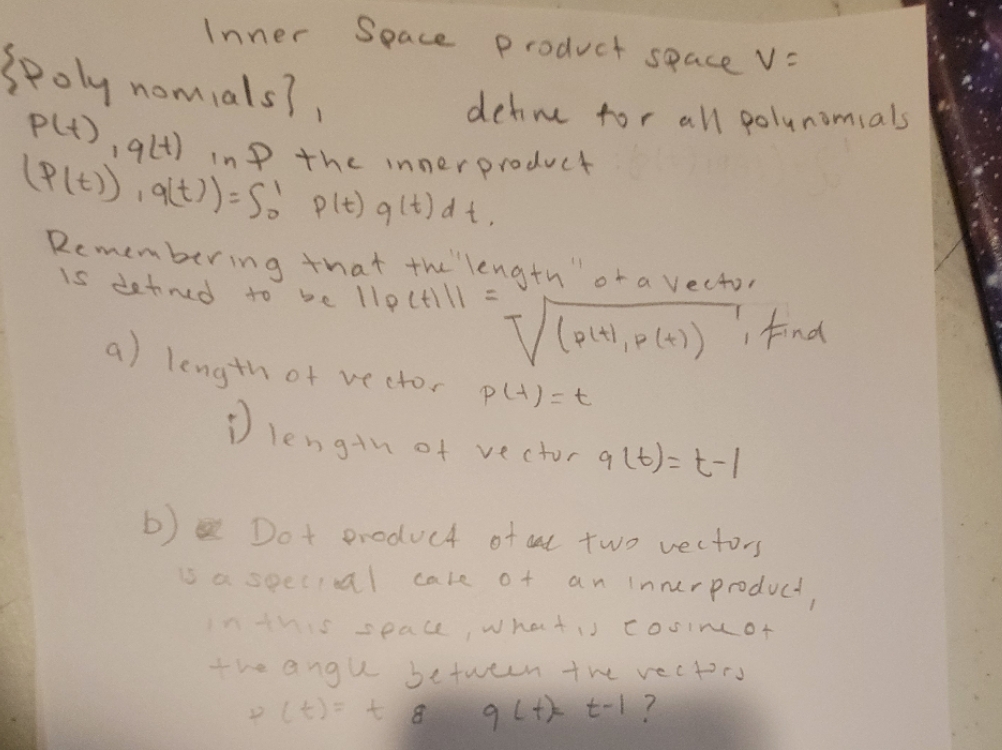 Inner Space product space V=
{Polynomials}, define for all polynomials
P(t), q(t) in P the inner product
(P(t)), q(t)) = ∫₀¹ p(t) q(t) dt.
Remembering that the "length" of a vector
is defined to be ||p(t)|| = √(p(t), p(t)), find
a) length of vector p(t) = t
i) length of vector q(t) = t-1
b) Dot product of two vectors
is a special case of an inner product,
in this space, what is cosine of
the angle between the vectors
p(t) = t & q(t) = t-1?